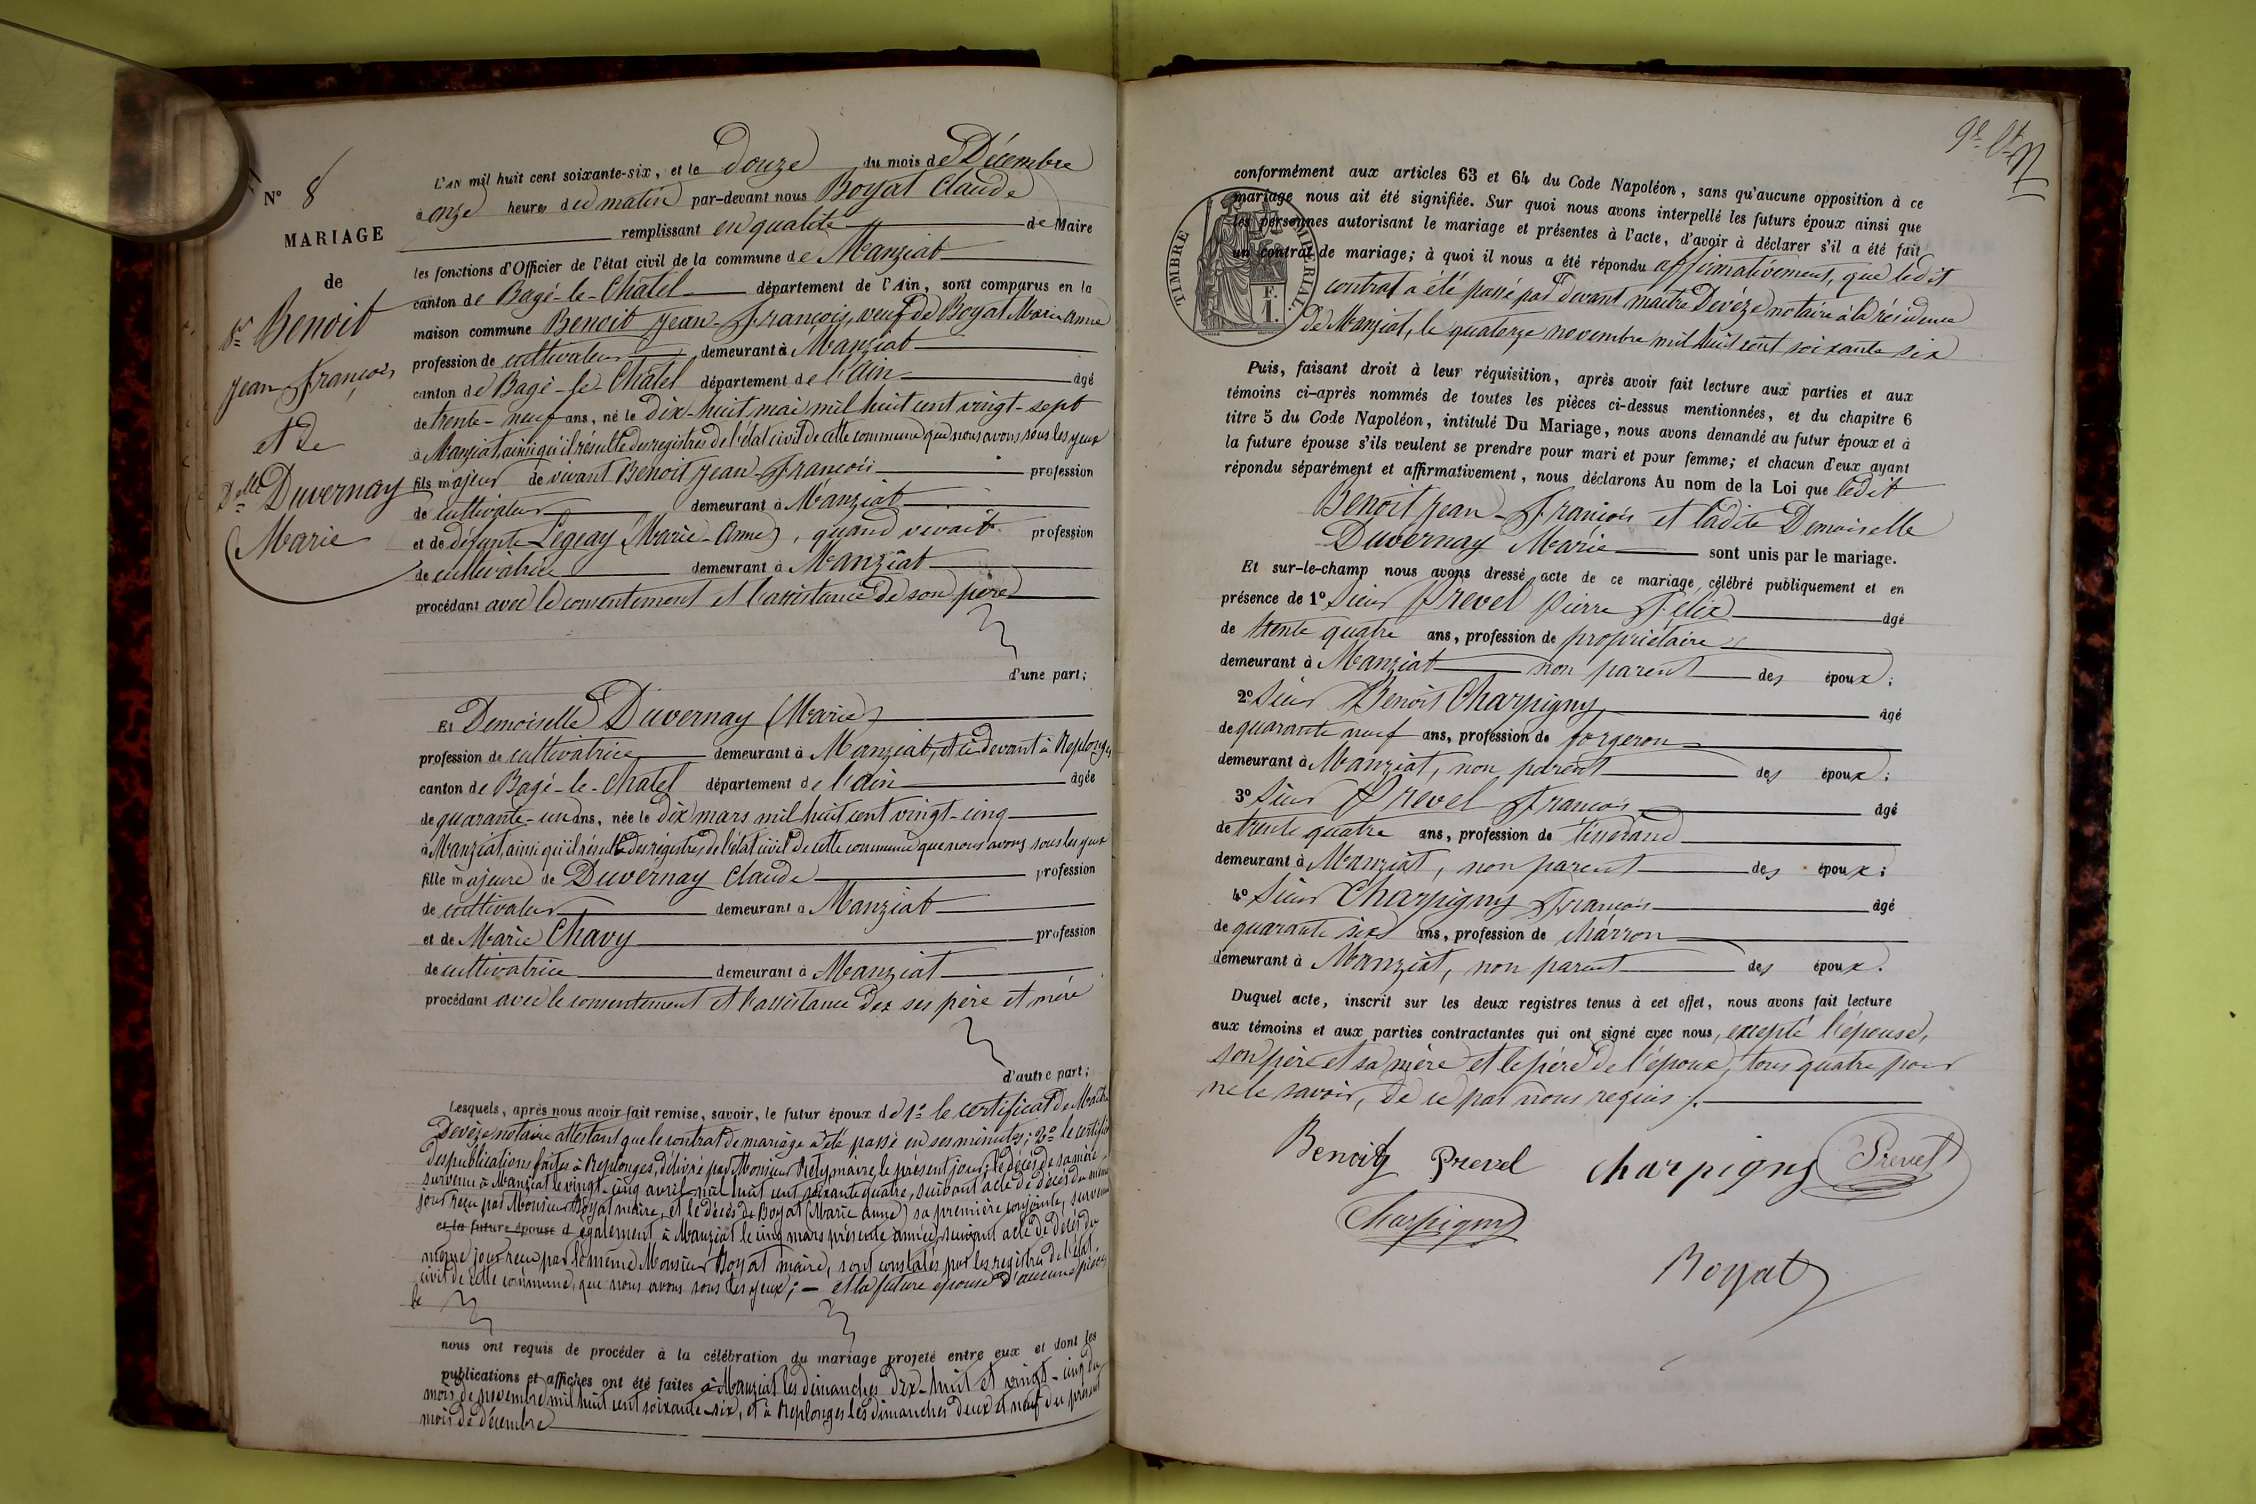 N° 8
MARIAGE
de
Sr Benoit
Jean-François
et De
Delle Duvernay
Marie
L'AN mil huit cent soixante-six, et le Douze du mois de Décembre
à onze heures du matin par-devant nous Boyat Claude
remplissant en qualité de Maire
les fonctions d'Officier de l'état civil de la commune de Manziat
canton de Bagé-le-Chatel département de l'Ain, sont comparus en la
maison commune Benoit Jean-François, veuf de Boyat Marie Anne
profession de cultivateur demeurant à Manziat
canton de Bagé-le-Chatel département de l'Ain âgé
de trente-neuf ans, né le dix-huit mai mil huit cent vingt-sept
à Manziat, ainsi qu'il résulte des registres de l'état civil de cette commune que nous avons sous les yeux
fils majeur de vivant Benoit Jean-François profession
de cultivateur demeurant à Manziat
et de défunte Legeay (Marie-Anne), quand vivait profession
de cultivatrice demeurant à Manziat
procédant avec le consentement et l'assistance de son père
d'une part;
Et Demoiselle Duvernay (Marie)
profession de cultivatrice demeurant à Manziat, et ci devant à Replonges
canton de Bagé-le-Chatel département de l'ain âgée
de quarante-un ans, née le dix mars mil huit cent vingt-cinq
à Manziat, ainsi qu'il résulte des régistres de l'état civil de cette commune que nous avons sous les yeux
fille majeure de Duvernay Claude profession
de cultivateur demeurant à Manziat
et de Marie Chavy profession
de cultivatrice demeurant à Manziat
procédant avec le consentement et l'assistance des ses père et mère
d'autre part;
Lesquels, après nous avoir fait remise, savoir, le futur époux de 1° le certificat de Maître
Devèze notaire attestant que le contrat de mariage a été passé en ses minutes; 2° le certificat
des publications faites à Replonges, délivré par Monsieur Rety, maire, le présent jour; le décès de sa mère
survenu à Manziat le vingt-cinq avril mil huit cent soixante quatre, suivant acte de décès du même
jour reçu par Monsieur Boyat maire, et le décès de Boyat (Marie Anne) sa première conjointe, survenu
et la future épouse d également à Manziat le cinq mars présente année, suivant acte de décès du
même jour reçu par le même Monsieur Boyat maire, sont constatés par les registres de l'état
civil de cette commune, que nous avons sous les yeux; — et la future épouse d'aucune pièce
nous ont requis de procéder à la célébration du mariage projeté entre eux et dont les
publications et affiches ont été faites à Manziat les dimanches dix-huit et vingt-cinq du
mois de novembre mil huit cent soixante-six, et à Replonges les dimanches deux et neuf du présent
mois de décembre
conformément aux articles 63 et 64 du Code Napoléon, sans qu'aucune opposition à ce
mariage nous ait été signifiée. Sur quoi nous avons interpellé les futurs époux ainsi que
les personnes autorisant le mariage et présentes à l'acte, d'avoir à déclarer s'il a été fait
un contrat de mariage; à quoi il nous a été répondu affirmativement, que ledit
contrat a été passé par devant maître Devèze notaire à la résidence
de Manziat, le quatorze novembre mil huit cent soixante six
TIMBRE IMPERIAL
F.
1.
Puis, faisant droit à leur réquisition, après avoir fait lecture aux parties et aux
témoins ci-après nommés de toutes les pièces ci-dessus mentionnées, et du chapitre 6
titre 5 du Code Napoléon, intitulé Du Mariage, nous avons demandé au futur époux et à
la future épouse s'ils veulent se prendre pour mari et pour femme; et chacun d'eux ayant
répondu séparément et affirmativement, nous déclarons Au nom de la Loi que ledit
Benoit Jean-François et ladite Demoiselle
Duvernay Marie sont unis par le mariage.
Et sur-le-champ nous avons dressé acte de ce mariage, célébré publiquement et en
présence de 1° Sieur Prevel Pierre Félix âgé
de trente quatre ans, profession de propriétaire
demeurant à Manziat non parent des époux;
2° Sieur Benoit Charpigny âgé
de quarante neuf ans, profession de forgeron
demeurant à Manziat, non parent des époux;
3° Sieur Prevel François âgé
de trente quatre ans, profession de tisserand
demeurant à Manziat, non parent des époux;
4° Sieur Charpigny François âgé
de quarante six ans, profession de charron
demeurant à Manziat, non parent des époux.
Duquel acte, inscrit sur les deux registres tenus à cet effet, nous avons fait lecture
aux témoins et aux parties contractantes qui ont signé avec nous, excepté l'épouse,
son père et sa mère et le père de l'époux, tous quatre pour
ne le savoir, de ce par nous requis ./.
Benoit Prevel Charpigny Prevel
Charpigny
Boyat